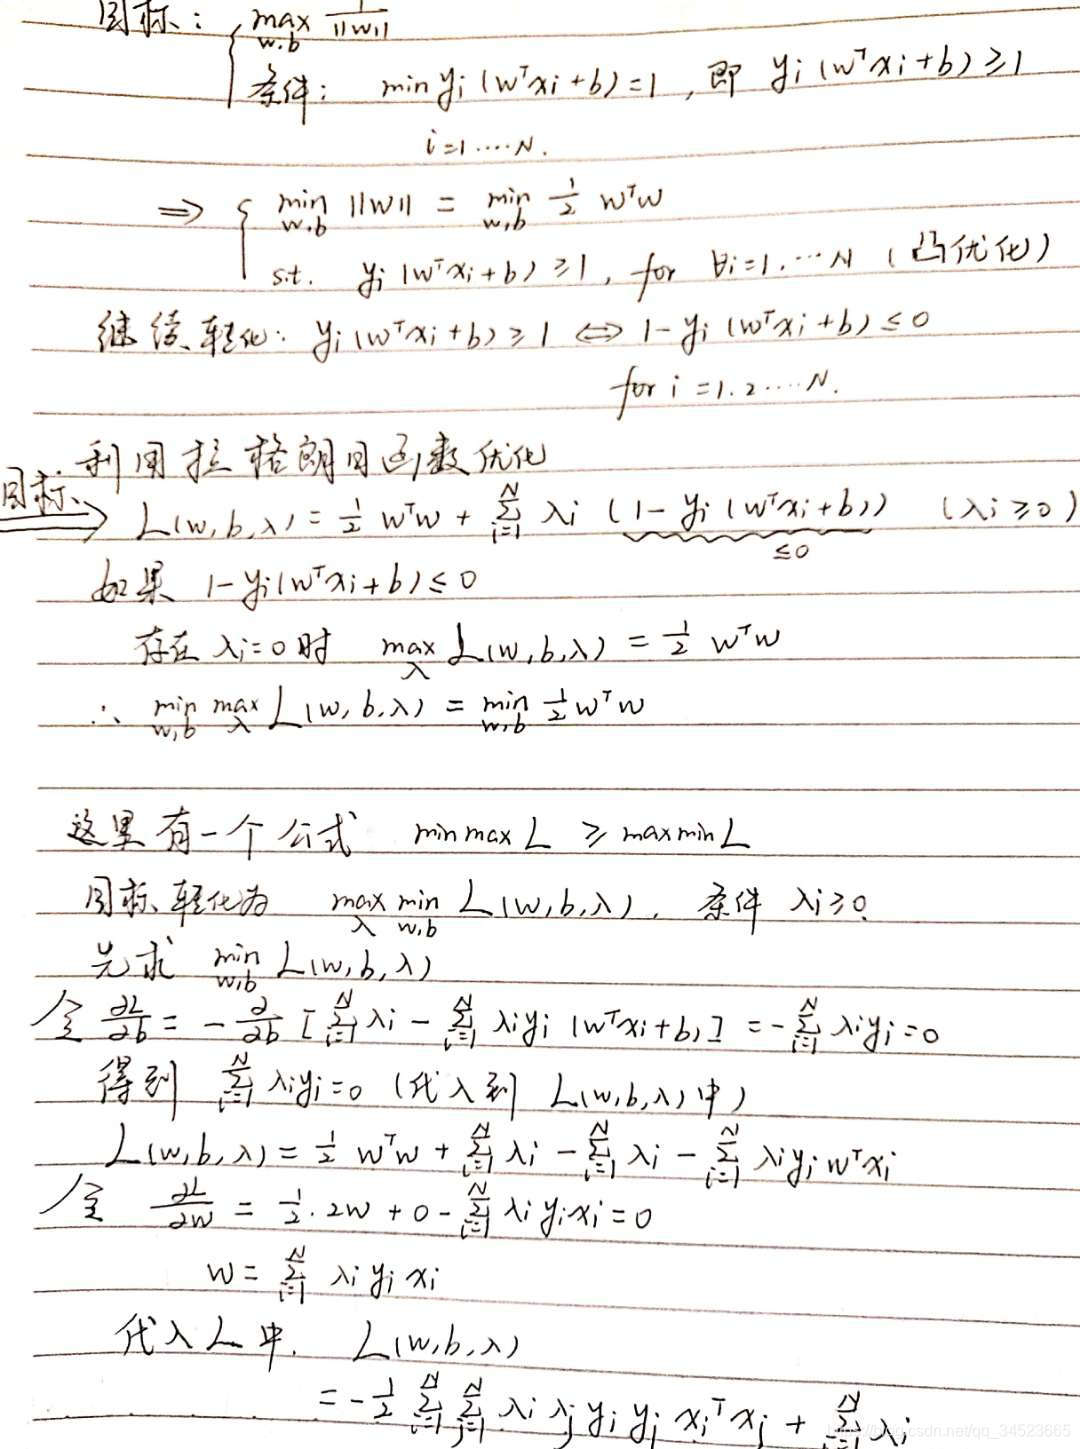 目标: { max w,b 1/||w||
条件: min yi (wᵀxi+b)=1, 即 yi (wᵀxi+b) ≥1
i=1·····N.
⇒ { min w,b ||w|| = min w,b 1/2 wᵀw
s.t. yi (wᵀxi+b) ≥1, for ∀i=1,···N (凸优化)
继续转化: yi (wᵀxi+b) ≥1 ⇔ 1-yi (wᵀxi+b) ≤0
for i=1.2·····N.
利用拉格朗日函数优化
目标 ⇒ L(w,b,λ) = 1/2 wᵀw + Σ_{i=1}^{N} λi (1-yi (wᵀxi+b)) (λi≥0)
≤0
如果 1-yi(wᵀxi+b) ≤0
存在 λi=0时 max λ L(w,b,λ) = 1/2 wᵀw
∴ min w,b max λ L(w,b,λ) = min w,b 1/2 wᵀw
这里有一个公式 min max L ≥ max min L
目标转化为 max λ min w,b L(w,b,λ), 条件 λi≥0.
先求 min w,b L(w,b,λ)
令 ∂L/∂b = -∂/∂b [Σ_{i=1}^{N} λi - Σ_{i=1}^{N} λiyi (wᵀxi+b)] = -Σ_{i=1}^{N} λiyi=0
得到 Σ_{i=1}^{N} λiyi=0 (代入到 L(w,b,λ)中)
L(w,b,λ) = 1/2 wᵀw + Σ_{i=1}^{N} λi - Σ_{i=1}^{N} λi - Σ_{i=1}^{N} λiyi wᵀxi
令 ∂L/∂w = 1/2·2w + 0 - Σ_{i=1}^{N} λiyixi=0
w = Σ_{i=1}^{N} λi yi xi
代入L中. L(w,b,λ)
= -1/2 Σ_{i=1}^{N} Σ_{j=1}^{N} λi λj yi yj xiᵀxj + Σ_{i=1}^{N} λi
https://blog.csdn.net/qq_34523665